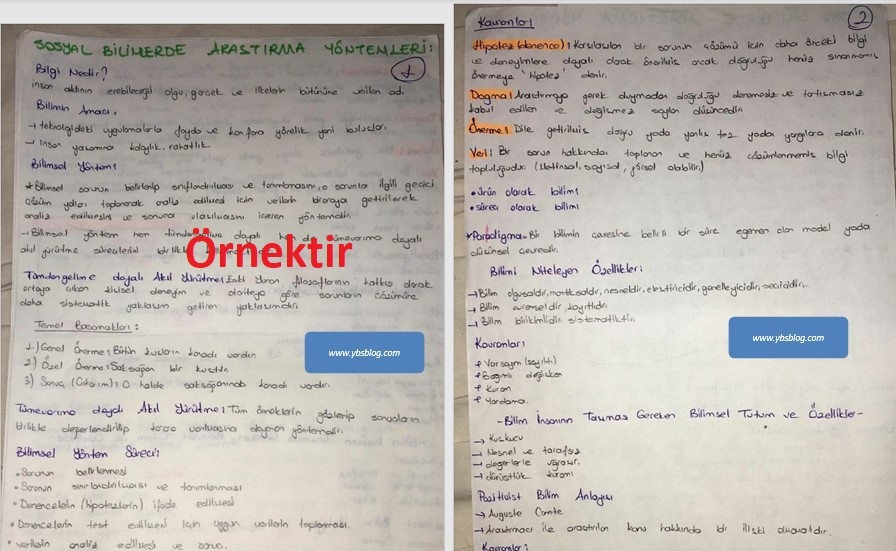 SOSYAL BİLİMERDE ARAŞTIRMA YÖNTEMLERİ:
1
Bilgi Nedir?
insan aklının erebileceği olgu, gerçek ve ilkelerin bütününe verilen ad.
Bilimin Amacı,
→ teknolojideki uygulamalarla fayda ve konfora yönelik yeni buluşlar.
→ İnsan yaşamına kolaylık, rahatlık.
Bilimsel Yöntem:
* Bilimsel sorunun belirlenip sınıflandırılması ve tanımlaması, o sorunla ilgili geçici
çözüm yolları toplanarak analiz edilmesi için verilerin biraraya getirilerek
analiz edilmesini ve sonuca ulaşılmasını içeren yöntemdir.
→ Bilimsel yöntem hem tümdengelime dayalı hem de tümevarıma dayalı
akıl yürütme süreçlerini birlikte
Örnektir
Tümdengelime dayalı Akıl Yürütme: Eski Yunan filozoflarının katkısı olarak
ortaya çıkan kişisel deneyim ve otoriteye göre sorunların çözümüne
daha sistematik yaklaşım getiren yaklaşımdır.
Temel Basamakları:
1-) Genel Önerme: Bütün kuşların kanadı vardır
2) Özel Önerme: Saksağan bir kuştur
3) Sonuç (Çıkarım): O halde saksağanında kanadı vardır.
www.ybsblog.com
Tümevarıma dayalı Akıl Yürütme: Tüm örneklerin gözlenip sonuçların
birlikte değerlendirilip karara varılmasına dayanan yöntemdir.
Bilimsel Yöntem Süreci:
• Sorunun belirlenmesi
• Sorunun sınırlandırılması ve tanımlanması
• Denencelerin (hipotezlerin) ifade edilmesi
• Denencelerin test edilmesi için uygun verilerin toplanması.
• verilerin analiz edilmesi ve sonuç.
2
Kavramlar
Hipotez (denence): Karşılaşılan bir sorunun çözümü için daha önceki bilgi
ve deneyimlere dayalı olarak önerilmiş ancak doğruluğu henüz sınanmamış
önermeye "hipotez" denir.
Dogma: Araştırmaya gerek duymadan doğruluğu denemesiz ve tartışmasız
kabul edilen ve değişmez sayılan düşüncedir.
Önerme: Dile getirilmiş doğru yada yanlış tez yada yargılara denir.
Veri: Bir sorun hakkında toplanan ve henüz çözümlenmemiş bilgi
topluluğudur. (Metinsel, sayısal, görsel olabilir.)
• ürün olarak bilim:
• süreci olarak bilim:
* Paradigma = Bir bilimin çevresine belirli bir süre egemen olan model yada
düşünsel çevredir.
Bilimi Niteleyen Özellikler:
→ Bilim olgusaldır, mantıksaldır, nesneldir, eleştiricidir, genelleyicidir, seçicidir.
→ Bilim evrenseldir, kayıtlıdır.
→ Bilim birikimlidir sistematiktir.
www.ybsblog.com
Kavramlar:
* Varsayım (sayıltı)
* Bağımlı değişken
* Kuram
* Yordama.
-Bilim İnsanının Taşıması Gereken Bilimsel Tutum ve Özellikler-
→ Kuşkucu
→ Nesnel ve tarafsız
→ değerlerle uğraşır.
→ dürüstlük kuramı
Pozitivist Bilim Anlayışı
→ Auguste Comte
→ Araştırmacı ile araştırılan konu hakkında bir ilişki olmamalıdır.
Kavramlar: